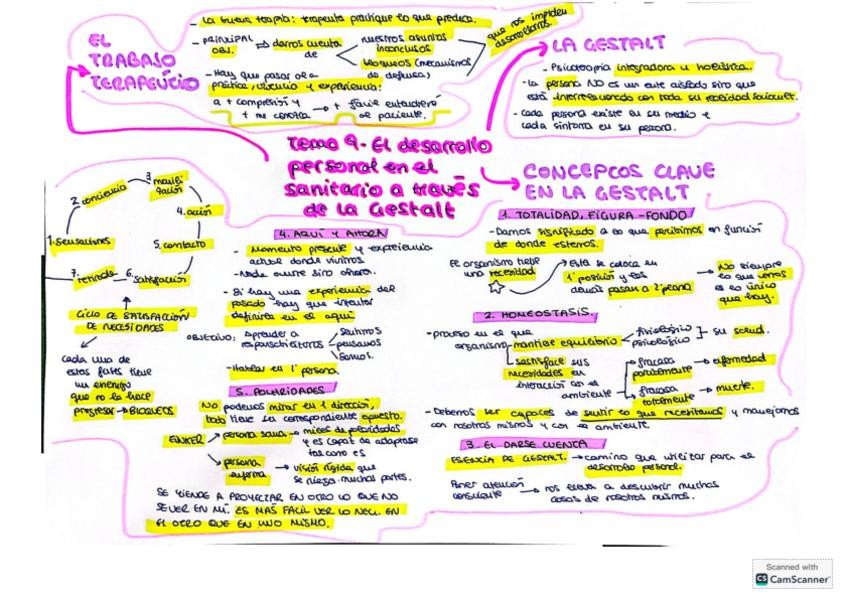 EL TRABAJO TERAPEÚTICO
- La buena terapia: terapeuta practique lo que predica.
- PRINCIPAL OBJ. → darnos cuenta de
nuestros asuntos inconclusos
bloqueos (mecanismos de defensa)
que nos impiden desarrollarnos.
- Hay que pasar de a práctica, vivencia y experiencia:
a + comprensión y + me conozca → + fácil entenderé al paciente.
LA GESTALT
- Psicoterapia integradora u holística.
- La persona NO es un ente aislado sino que
está interrelacionado con toda su realidad sociocult.
- Cada persona existe en su medio e
cada síntoma en su persona.
Tema 9.- El desarrollo
personal en el
sanitario a través
de la Gestalt
CONCEPTOS CLAVE
EN LA GESTALT
1. TOTALIDAD, FIGURA-FONDO
- Damos significado a lo que percibimos en función
de donde estemos.
El organismo tiene una necesidad
→ Esta se coloca en
1ª posición y las
demás pasan a 2º plano
→ No siempre
lo que vemos
es lo único
que hay.
2. HOMEOSTASIS.
- proceso en el que
organismo mantiene equilibrio
fisiológico
psicológico
su salud.
satisface sus
necesidades en
interacción con el
ambiente
fracasa
parcialmente
→ enfermedad
fracasa
totalmente
→ muerte.
- Debemos ser capaces de sentir lo que necesitamos y manejarnos
con nosotros mismos y con el ambiente.
3. EL DARSE CUENTA
ESENCIA DE GESTALT. → camino que utilizar para el
desarrollo personal.
Poner atención
consciente
→ nos lleva a descubrir muchas
cosas de nosotros mismos.
4. AQUÍ Y AHORA
- Momento presente y experiencia
actual donde vivimos
- Nada ocurre sino ahora.
- Si hay una experiencia del
pasado hay que intentar
definirla en el aquí
OBJETIVO: Aprender a
responsabilizarnos
sentimos
pensamos
somos.
- Hablar en 1ª persona
5. POLARIDADES
No podemos mirar en 1 dirección,
todo tiene su correspondiente opuesto.
ZINKER
persona sana → miles de polaridades
y es capaz de aceptarse
tal como es
persona
enferma
→ visión rígida que
se niega muchas partes.
SE TIENDE A PROYECTAR EN OTRO LO QUE NO
SE VER EN MÍ. ES MÁS FÁCIL VER LO NEG. EN
EL OTRO QUE EN UNO MISMO.
1. Sensaciones
2. conciencia
3. movilización
4. acción
5. contacto
6. satisfacción
7. retirada
CICLO DE SATISFACCIÓN
DE NECESIDADES
cada una de
estas fases tiene
un enemigo
que no la hace
progresar → BLOQUEOS
Scanned with
CS CamScanner